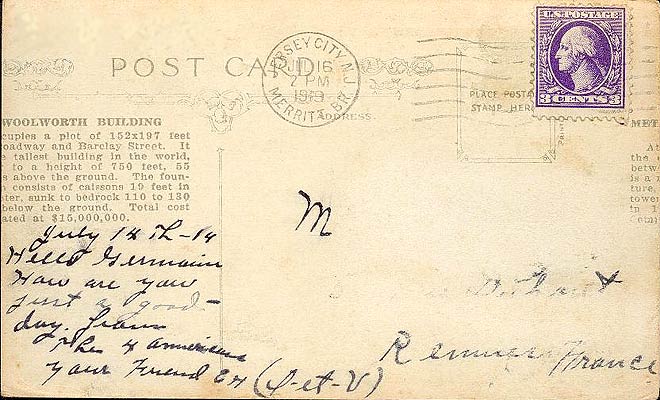 POST CARD
JERSEY CITY, N.J.
JUL 16
7 PM
MERRITT BR
U.S. POSTAGE
3 CENTS 3
PLACE POSTA
STAMP HERE
ADDRESS.
WOOLWORTH BUILDING
cupies a plot of 152x197 feet
oadway and Barclay Street. It
e tallest building in the world,
to a height of 750 feet, 55
s above the ground. The foun-
consists of caissons 19 feet in
ter, sunk to bedrock 110 to 130
below the ground. Total cost
ated at $15,000,000.
MET
At
the
betw
is a
ture,
tower
in 1
July 14 Th - 19
Hello Germain
How are you
just a good-
day. from
The 4 americans
your Friend
M
Rennes France
(I-et-V)